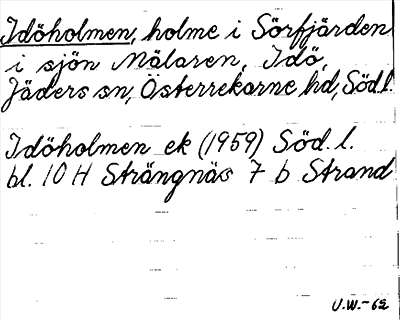 Idöholmen, holme i Sörfjärden
i sjön Mälaren, Idö,
Jäders sn, Österrekarne hd, Söd.l.
Idöholmen ek (1959) Söd. l.
bl. 10 H Strängnäs 7 b Strand
U.W.-62